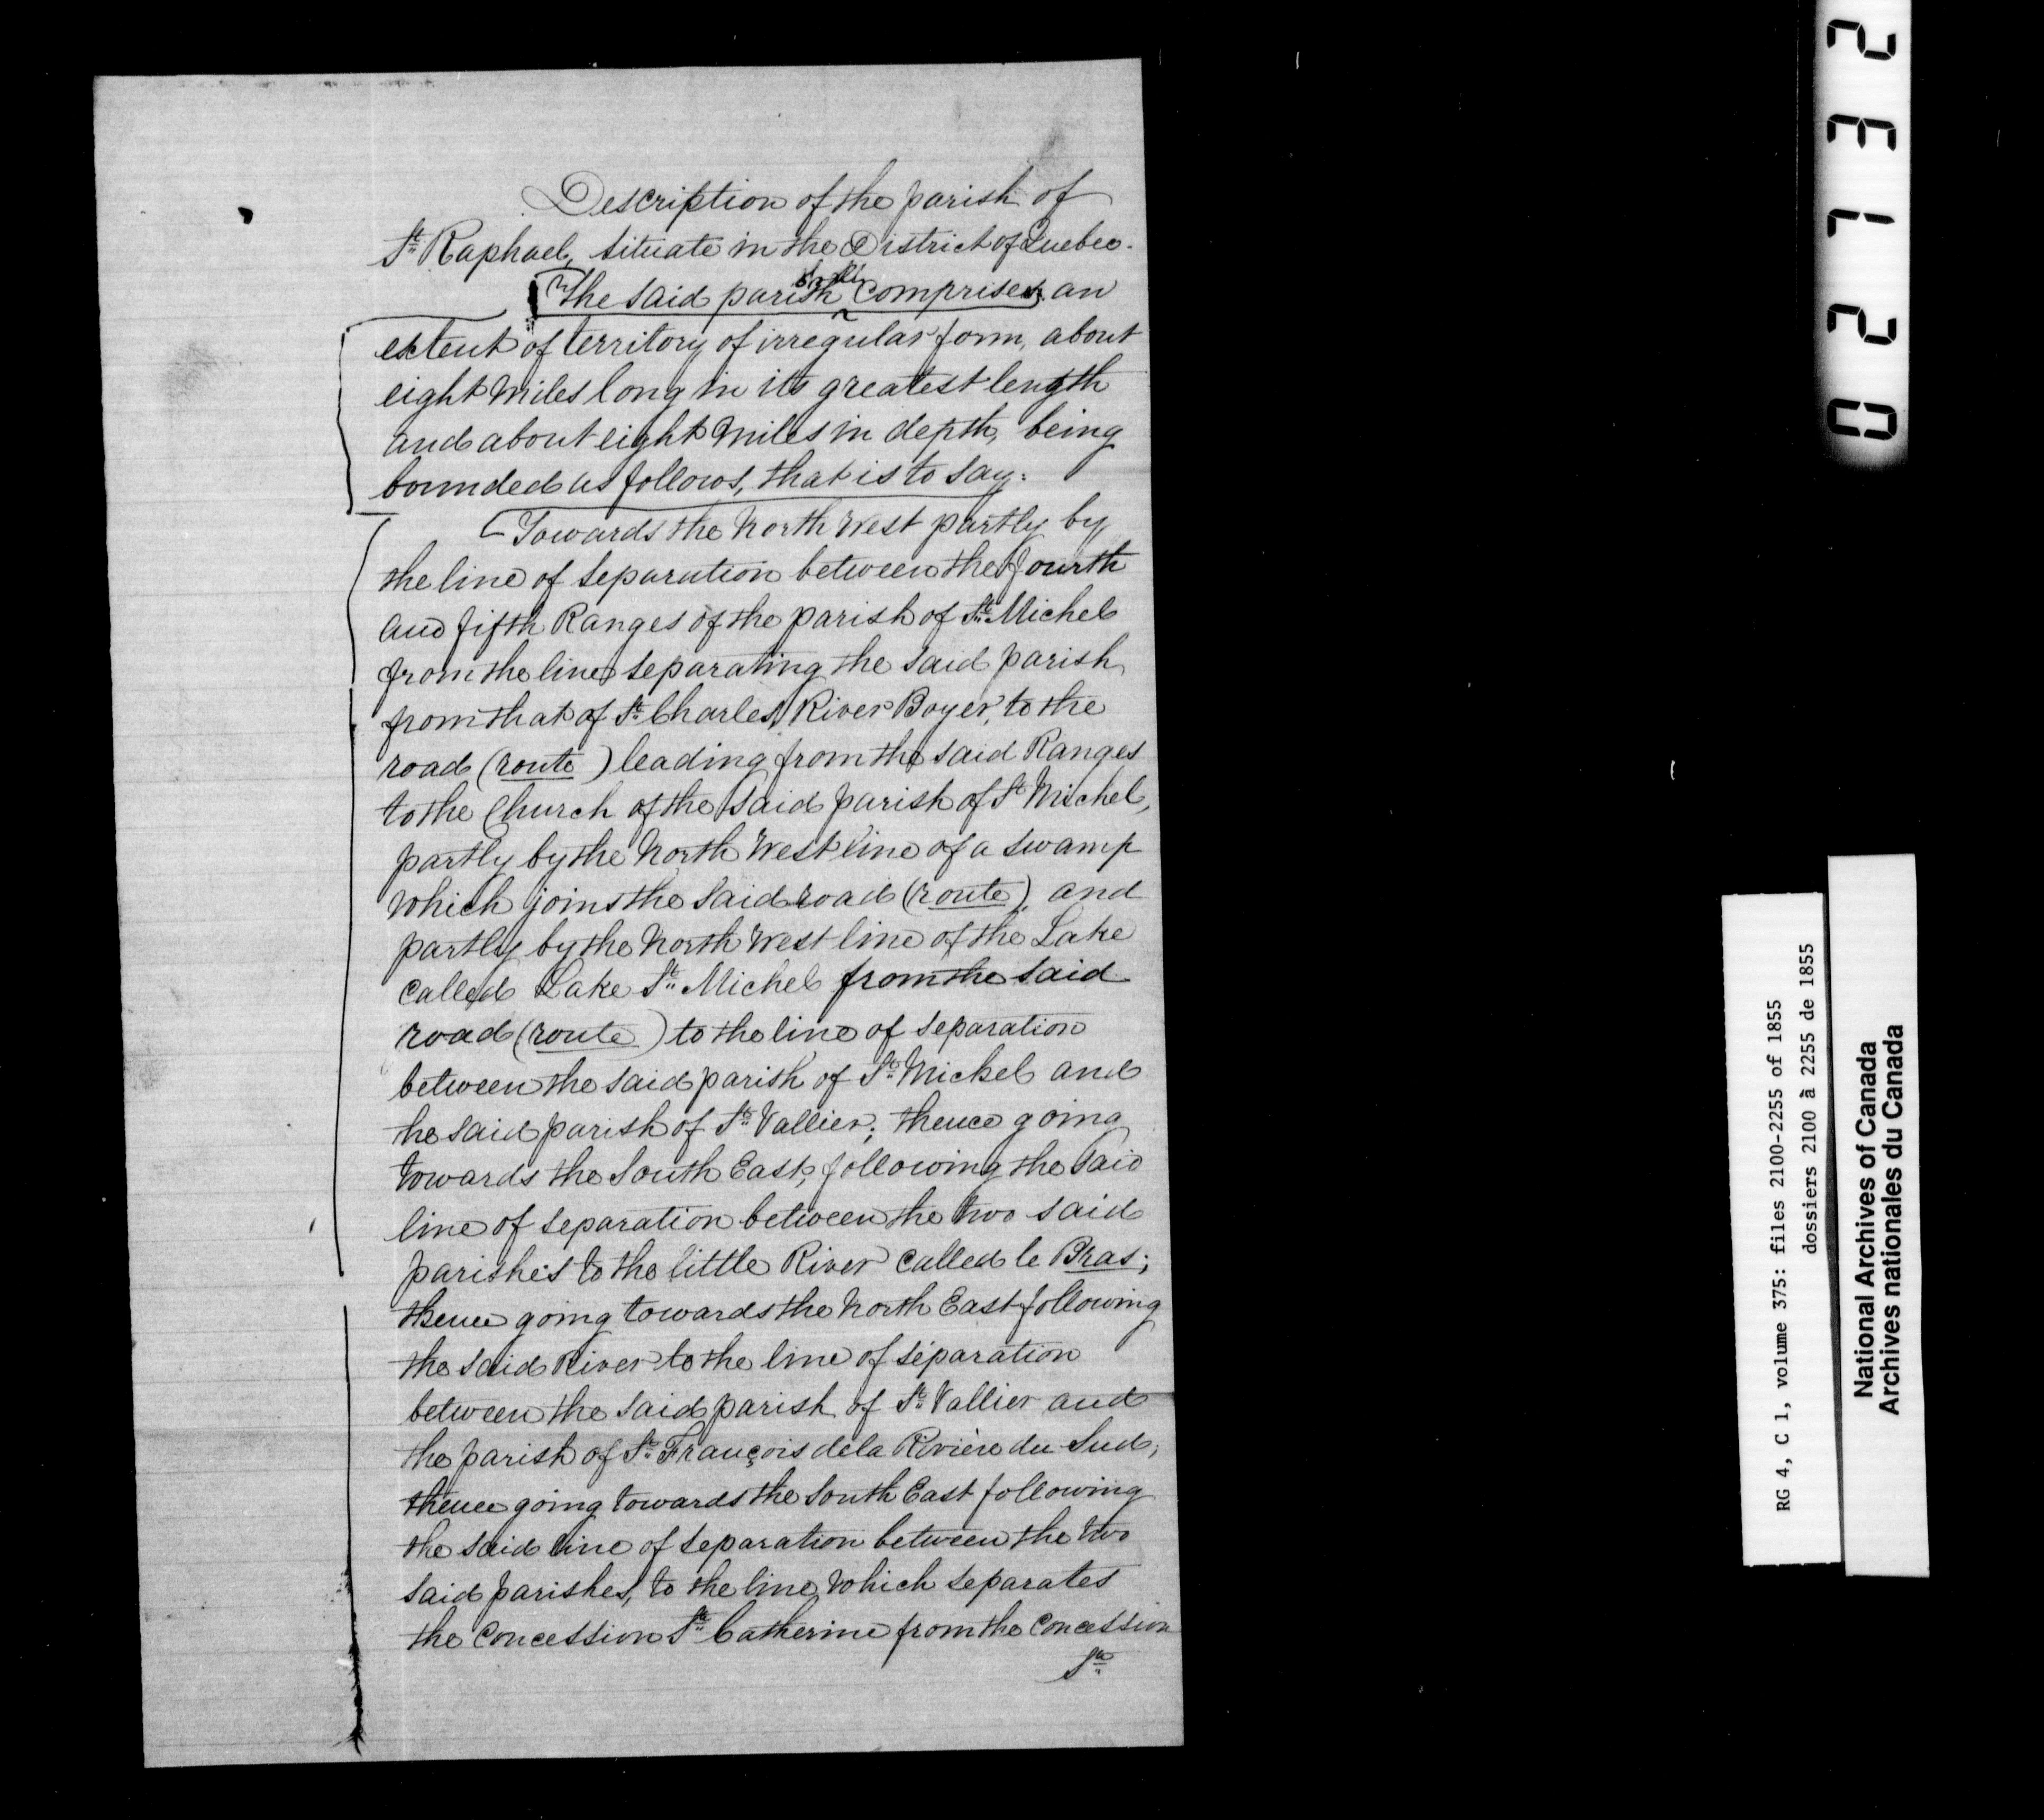 Description of the parish of
St. Raphael, situate in the District of Quebec.
The said parish comprises an
extent of territory of irregular form, about
eight miles long in its greatest length
and about eight miles in depth, being
bounded as follows, that is to say:
Towards the North West partly by
the line of separation between the fourth
and fifth Ranges of the parish of St. Michel
from the line separating the said parish
from that of St. Charles, River Boyer, to the
road (route) leading from the said Ranges
to the Church of the said parish of St. Michel,
partly by the North West line of a swamp
which joins the said road (route), and
partly by the North West line of the Lake
called Lake St. Michel from the said
road (route) to the line of separation
between the said parish of St. Michel and
he said parish of St. Vallier; thence going
towards the South East, following the said
line of separation between the two said
parishes to the little River called le Bras;
thence going towards the North East following
the said River to the line of séparation
between the said parish of St. Vallier and
the parish of St. François de la Rivière du Sud;
thence going towards the South East following
the said line of separation between the two
said parishes, to the line which separates
the Concession Ste. Catherine from the Concession
Ste.
02132
RG 4, C 1, volume 375: files 2100-2255 of 1855
dossiers 2100 à 2255 de 1855
National Archives of Canada
Archives nationales du Canada